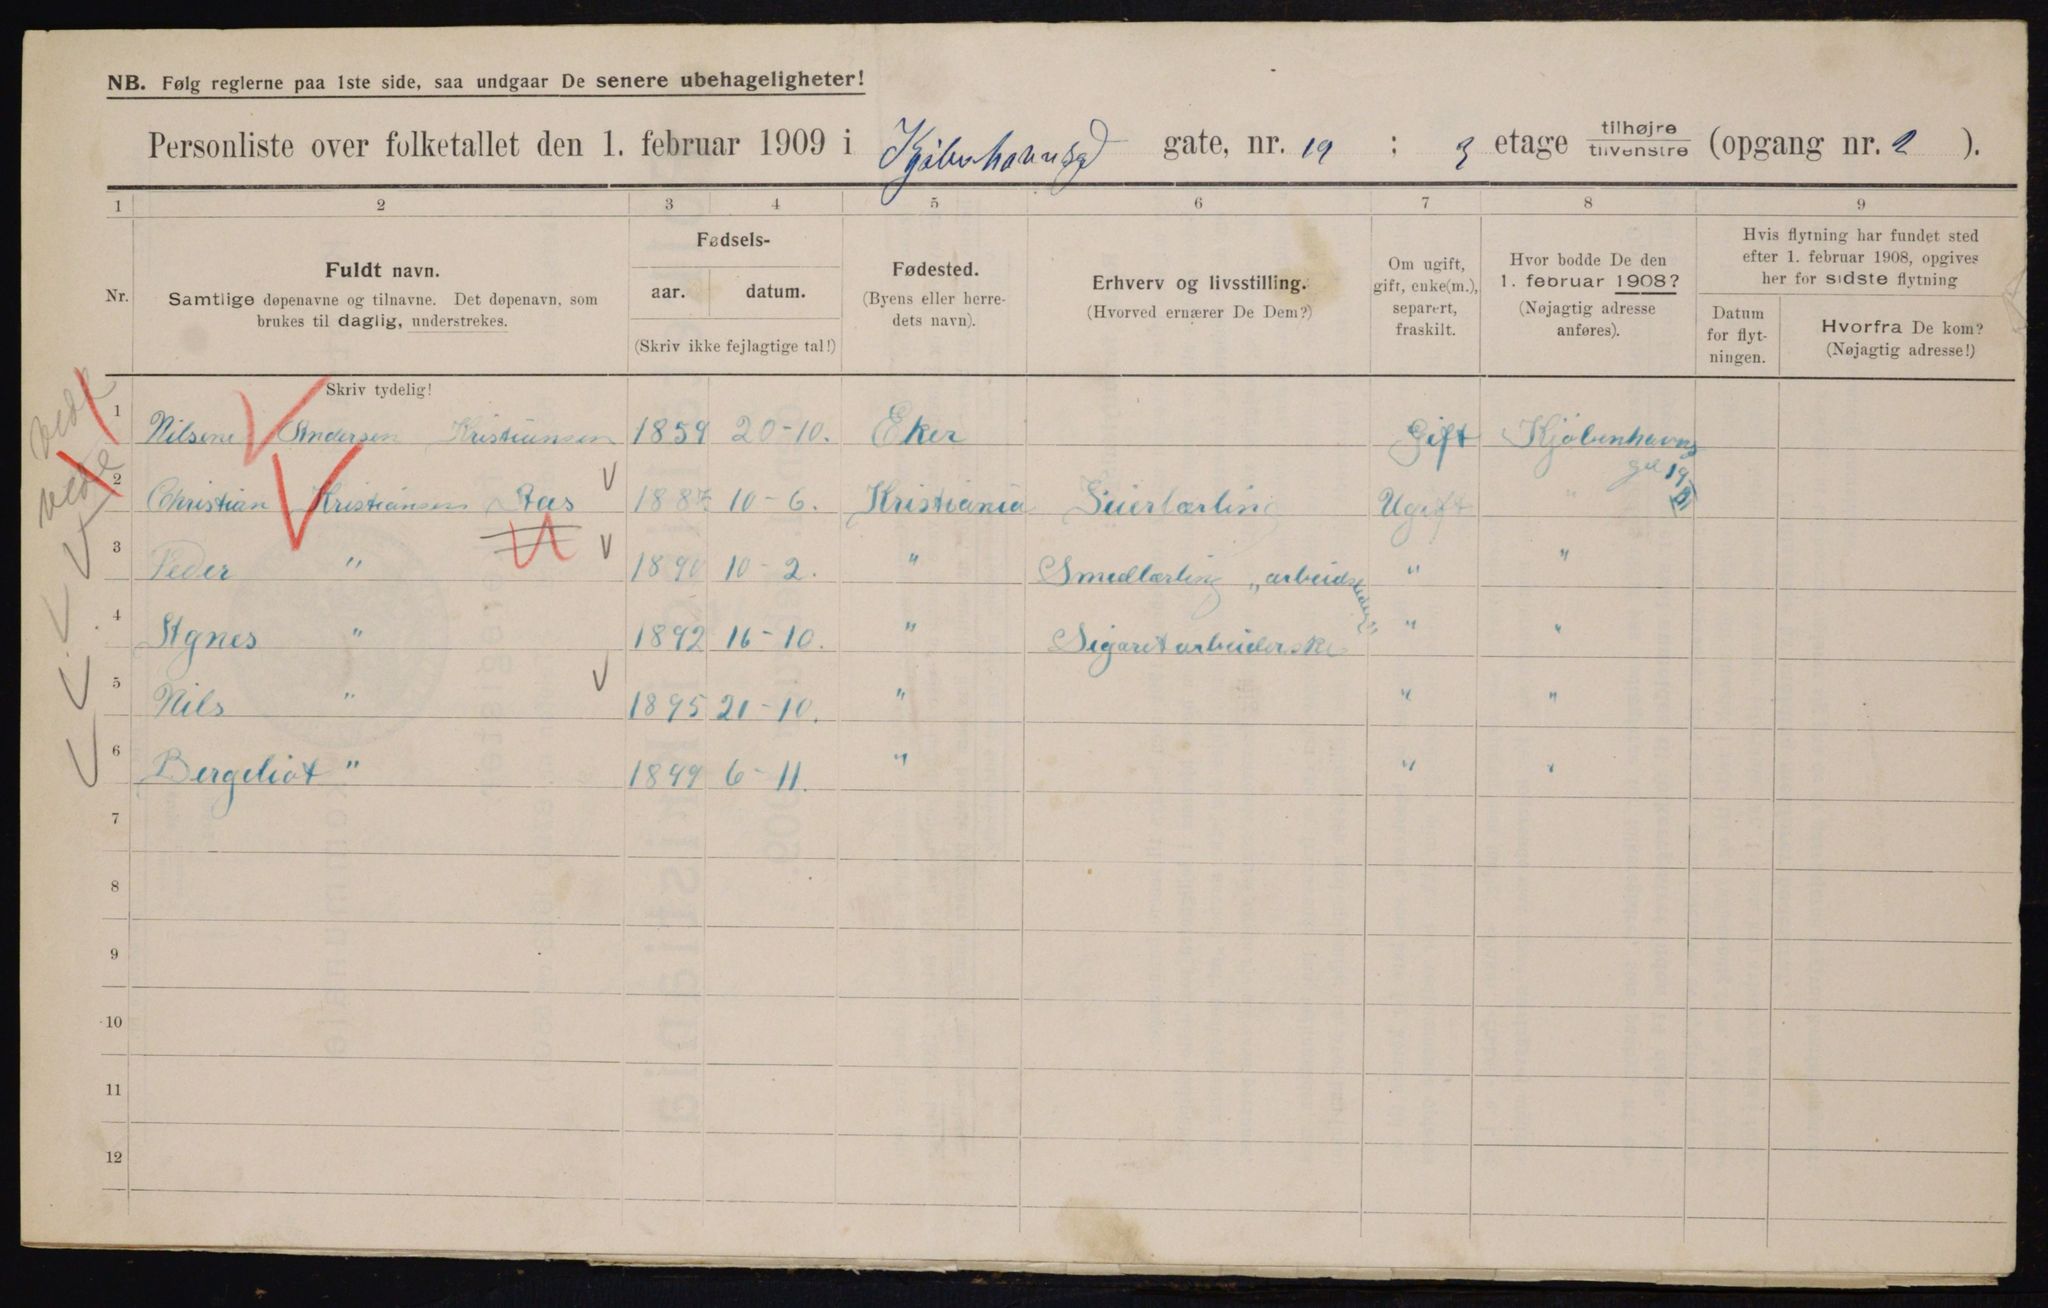 NB. Følg reglerne paa 1ste side, saa undgaar De senere ubehageligheter!
Personliste over folketallet den 1. februar 1909 i Kjøbenhavnsgd gate, nr. 19 ; 3 etage tilhøjre tilvenstre (opgang nr. 2 ).
1 2 3 4 5 6 7 8 9
Nr. Fuldt navn. Samtlige døpenavne og tilnavne. Det døpenavn, som brukes til daglig, understrekes.
Fødsels- aar. datum. (Skriv ikke fejlagtige tal!)
Fødested. (Byens eller herredets navn).
Erhverv og livsstilling. (Hvorved ernærer De Dem?)
Om ugift, gift, enke(m.), separert, fraskilt.
Hvor bodde De den 1. februar 1908? (Nøjagtig adresse anføres).
Hvis flytning har fundet sted efter 1. februar 1908, opgives her for sidste flytning
Datum for flytningen. Hvorfra De kom? (Nøjagtig adresse!)
Skriv tydelig!
1 Nilsene Andersen Kristiansen 1859 20-10. Eker Gift Kjøbenhavns
gd 19
2 Christian Kristiansen Aas 1887 10-6. Kristiania Ugift "
3 Peder " 1890 10-2. " Smedlærling "arbeidsledig" " "
4 Agnes " 1892 16-10. " Sigaretarbeiderske " "
5 Nils " 1895 21-10. " " "
6 Bergeliot " 1899 6-11. " " "
7
8
9
10
11
12